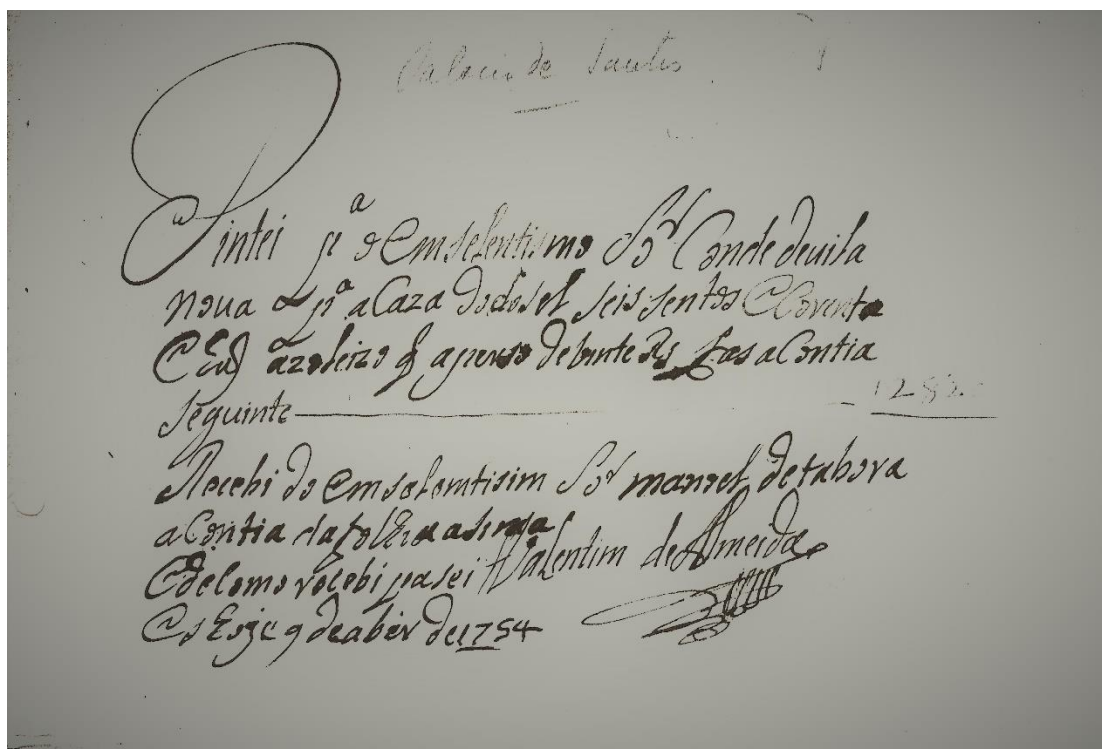 Palacio de Santos
Pintei pª o Emselentismo Sor Conde de vila
nova pª a Caza do dosel seis sentos e Corenta
azoleizo a preso de vinte Rs fas a Contia
seguinte
Recebi do Emselemtisim Sor manoel de tabora
a Contia da folha asima
e de Como recebi pasei Valentim de Almeida
Es Eoje 9 de abir de 1754